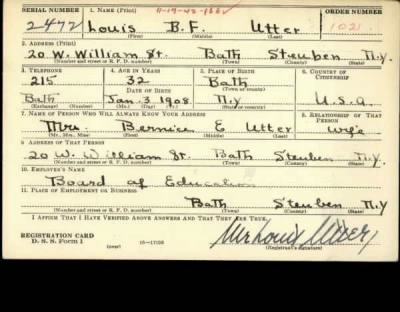 SERIAL NUMBER 1. NAME (Print) ORDER NUMBER
2472 Louis B. F. Utter 1021
(First) (Middle) (Last)
2. ADDRESS (Print)
20 W. William St. Bath Steuben N.Y.
(Number and street or R. F. D. number) (Town) (County) (State)
3. TELEPHONE 4. AGE IN YEARS 5. PLACE OF BIRTH 6. COUNTRY OF CITIZENSHIP
215 32 Bath
DATE OF BIRTH (Town or county)
Bath Jan. 3 1908 N.Y U.S.A.
(Exchange) (Number) (Mo.) (Day) (Yr.) (State or country)
7. NAME OF PERSON WHO WILL ALWAYS KNOW YOUR ADDRESS 8. RELATIONSHIP OF THAT PERSON
Mrs. Bernice E Utter wife
(Mr., Mrs., Miss) (First) (Middle) (Last)
9. ADDRESS OF THAT PERSON
20 W. William St. Bath Steuben N.Y.
(Number and street or R. F. D. number) (Town) (County) (State)
10. EMPLOYER'S NAME
Board of Education
11. PLACE OF EMPLOYMENT OR BUSINESS
Bath Steuben N.Y
(Number and street or R. F. D. number) (Town) (County) (State)
I AFFIRM THAT I HAVE VERIFIED ABOVE ANSWERS AND THAT THEY ARE TRUE.
REGISTRATION CARD
D. S. S. Form 1 (over) 16—17105 (Registrant's signature)
Louis Utter